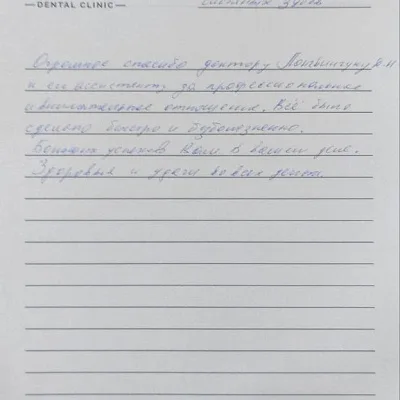 — DENTAL CLINIC —
Огромное спасибо доктору
и его ассистенту за профессиональное
и внимательное отношение. Всё было
сделано быстро и безболезненно.
Больших успехов Вам в вашем деле.
Здоровья и удачи во всех делах.